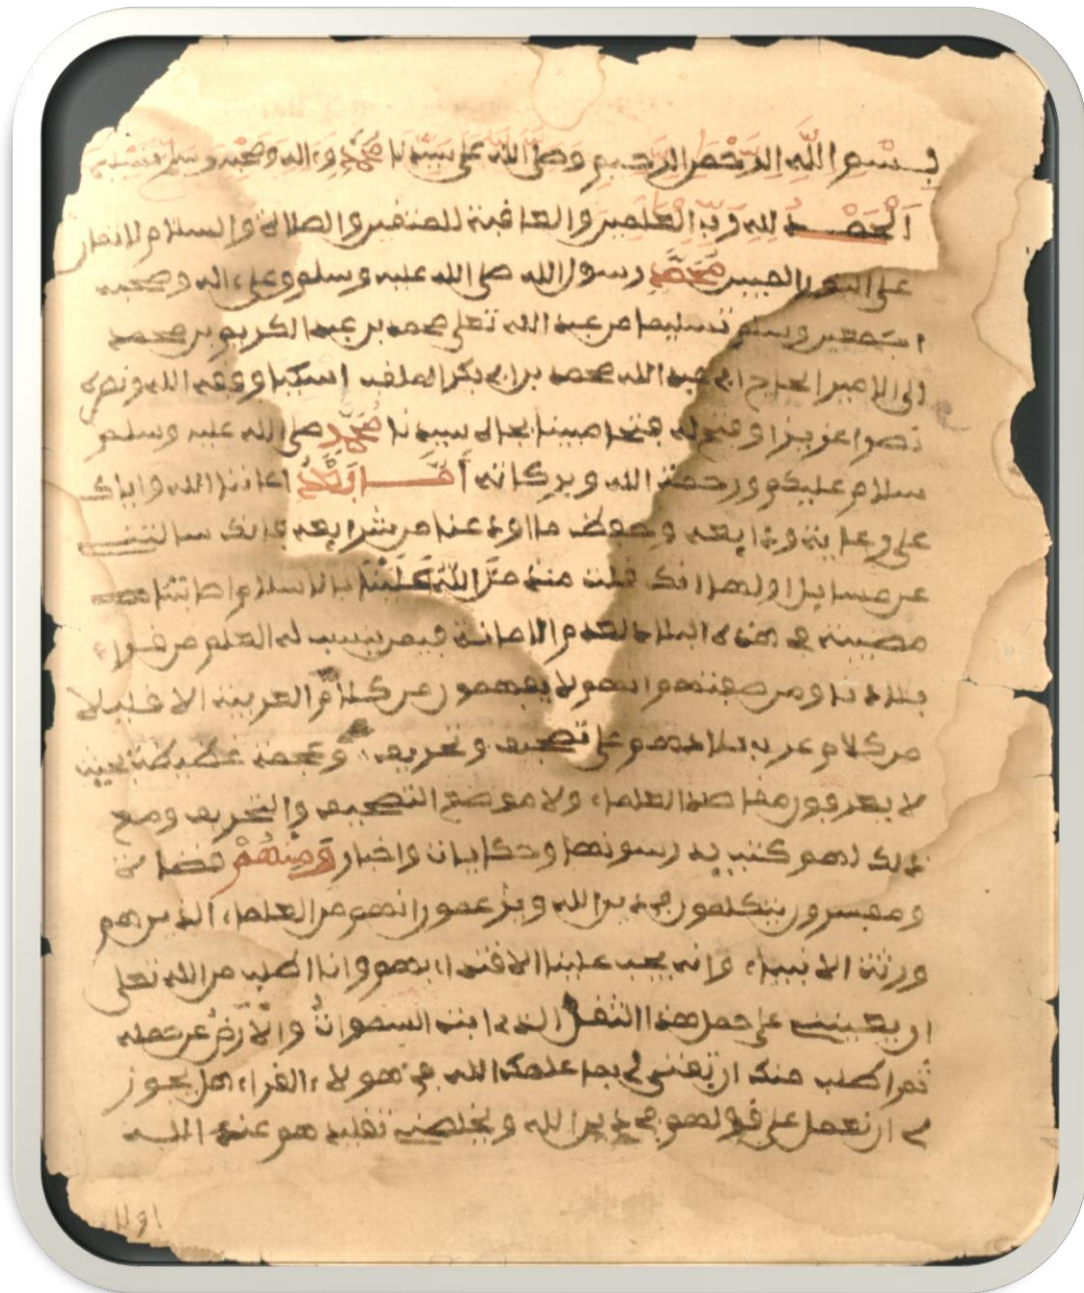 بسم الله الرحمن الرحيم وصلى الله على سيدنا محمد وءاله وصحبه وسلم تسليما
الحمد لله رب العلمين والعاقبة للمتقين والصلاة والسلام
على النبي محمد رسول الله صلى الله عليه وسلم وعلى ءاله وصحبه
اجمعين وسلم تسليما من عبد الله تعلى محمد بن عبد الكريم بن محمد
الى الامير الحاج ابى عبد الله محمد بن ابى بكر الملقب اسكيا ووفقه الله ونصره
نصرا عزيزا وفتح له فتحا مبينا بجاه سيدنا محمد صلى الله عليه وسلم
سلام عليكم ورحمة الله وبركاته أما بعد اعاننا الله واياك
على رعاية ودايعه وحفظ ما اودعنا من شرايعه فانك سالتنى
عن مسايل اولها انك قلت منذ من الله علينا بالاسلام اصابتنا
مصيبة فى هذه البلاد لعدم الامانة فيمن ينسب له العلم من قراء
بلادنا ومن صفتهم انهم لا يفهمون من كلام العربية الا قليلا
من كلام عرب بلادهم على تصحيف وتحريف وعجمة عظيمة بحيث
لا يعرفون مقاصد العلماء ولا موضع التصحيف والتحريف ومع
ذلك لهم كتب يدرسونها وحكايات واخبار ومنهم قضاة
ومفسرون يتكلمون فى دين الله ويزعمون انهم من العلماء الذين هم
ورثة الانبياء وانه يجب علينا الاقتداء بهم وانا اطلب من الله تعلى
ان يعيننى على حمل هذا الثقل الذى ابته السموات والارض عن حمله
ثم اطلب منك ان تفتى لى بما علمك الله فى هولاء القراء هل يجوز
لى ان نعمل على قولهم فى دين الله ويخلصنى تقليدهم عند الله